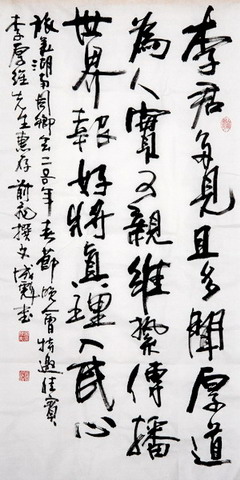 李君多見且多聞厚道
為人實可親維繫傳播
世界報好將真理入民心
旅美湖南同鄉會年春節晚會特邀佳賓
李厚維先生惠存撰文書